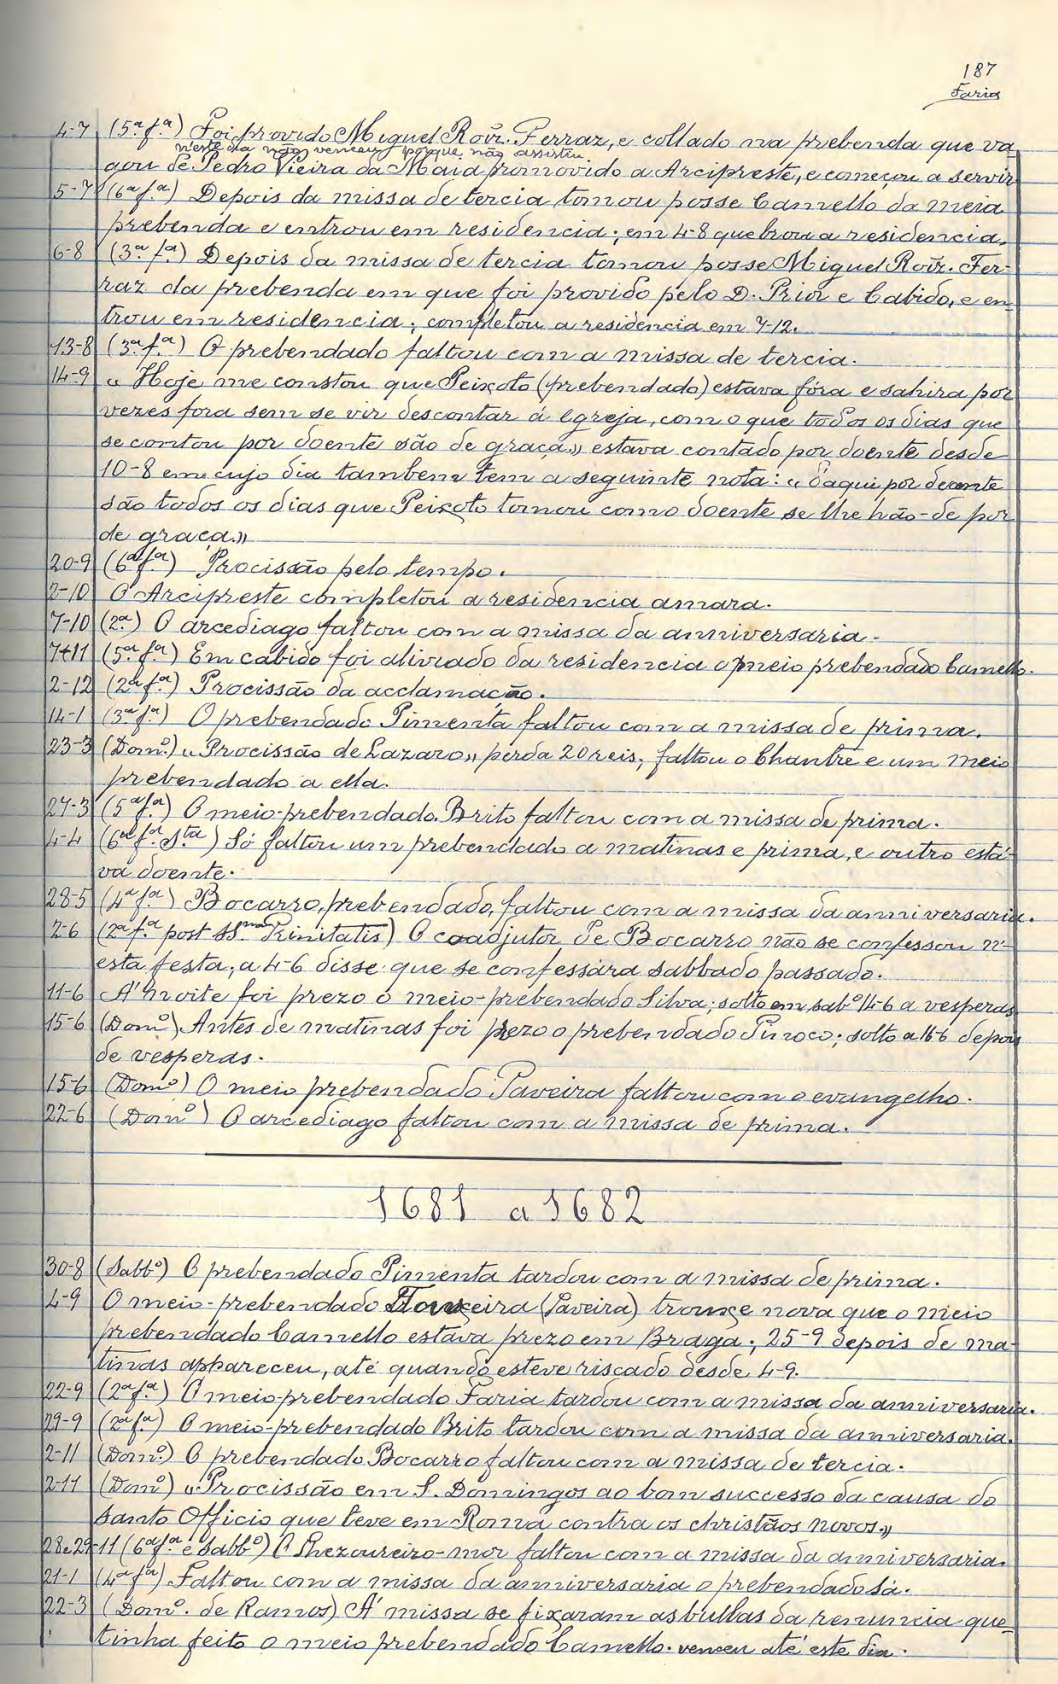 187
Faria
4-7 (5ª fª) Foi provido Miguel Roiz. Ferraz, e collado na prebenda que va-
neste dia não venceu porque não assistiu
gou de Pedro Vieira da Maia promovido a Arcipreste, e começou a servir
5-7 (6ª fª) Depois da missa de tercia tomou posse Camello da meia
prebenda e entrou em residencia; em 4-8 quebrou a residencia.
6-8 (3ª fª) Depois da missa de tercia tomou posse Miguel Roiz. Fer-
raz da prebenda em que foi provido pelo D. Prior e Cabido, e en-
trou em residencia; completou a residencia em 7-12.
13-8 (3ª fª) O prebendado faltou com a missa de tercia.
14-9 «Hoje me constou que Peixoto (prebendado) estava fóra e sahira por
vezes fora sem se vir descontar á Egreja, com o que todos os dias que
se contou por doente são de graça» estava contado por doente desde
10-8 em cujo dia tambem tem a seguinte nota: «daqui por deante
são todos os dias que Peixoto tomou como doente se lhe hão-de pôr
de graça.»
20-9 (6ª fª) Procissão pelo tempo.
2-10 O Arcipreste completou a residencia amara.
7-10 (2ª) O arcediago faltou com a missa da anniversaria.
7-11 (5ª fª) Em cabido foi aliviado da residencia o meio prebendado Camello.
2-12 (2ª fª) Procissão da acclamação.
14-1 (3ª fª) O prebendado Pimenta faltou com a missa de prima.
23-3 (Domº) «Procissão de Lazaro» perda 20 reis, faltou o Chantre e um meio
prebendado a ella.
27-3 (5ª fª) O meio-prebendado Brito faltou com a missa de prima.
4-4 (6ª fª Sta) Só faltou um prebendado a matinas e prima, e outro esta-
va doente.
28-5 (4ª fª) Bocarro, prebendado, faltou com a missa da anniversaria.
2-6 (2ª fª post SSma Trinitatis) O coadjutor de Bocarro não se confessou n'-
esta festa; a 4-6 disse que se confessára sabbado passado.
11-6 Á noite foi prezo o meio-prebendado Silva; solto em sabº 14-6 a vesperas
15-6 (Domº). Antes de matinas foi prezo o prebendado Tinoco; solto a 16-6 depois
de vesperas.
15-6 (Domº) O meio prebendado Paveira faltou com o evangelho.
22-6 (Domº) O arcediago faltou com a missa de prima.
1681 a 1682
30-8 (Sabbº) O prebendado Pimenta tardou com a missa de prima.
4-9 O meio-prebendado (Paveira) trouxe nova que o meio
prebendado Camello estava prezo em Braga; 25-9 depois de ma-
tinas appareceu, até quando esteve riscado desde 4-9.
22-9 (2ª fª) O meio-prebendado Faria tardou com a missa da anniversaria.
29-9 (2ª fª) O meio-prebendado Brito tardou com a missa da anniversaria.
2-11 (Domº) O prebendado Bocarro faltou com a missa de tercia.
2-11 (Domº) «Procissão em S. Domingos ao bom successo da causa do
Santo Officio que teve em Roma contra os christãos novos.»
28 e 29-11 (6ª fª e Sabbº) O Thezoureiro-mor faltou com a missa da anniversaria.
21-1 (4ª fª) Faltou com a missa da anniversaria o prebendado Sá.
22-3 (Domº. de Ramos) Á missa se fixaram as bullas da renuncia que
tinha feito o meio prebendado Camello. venceu até este dia.